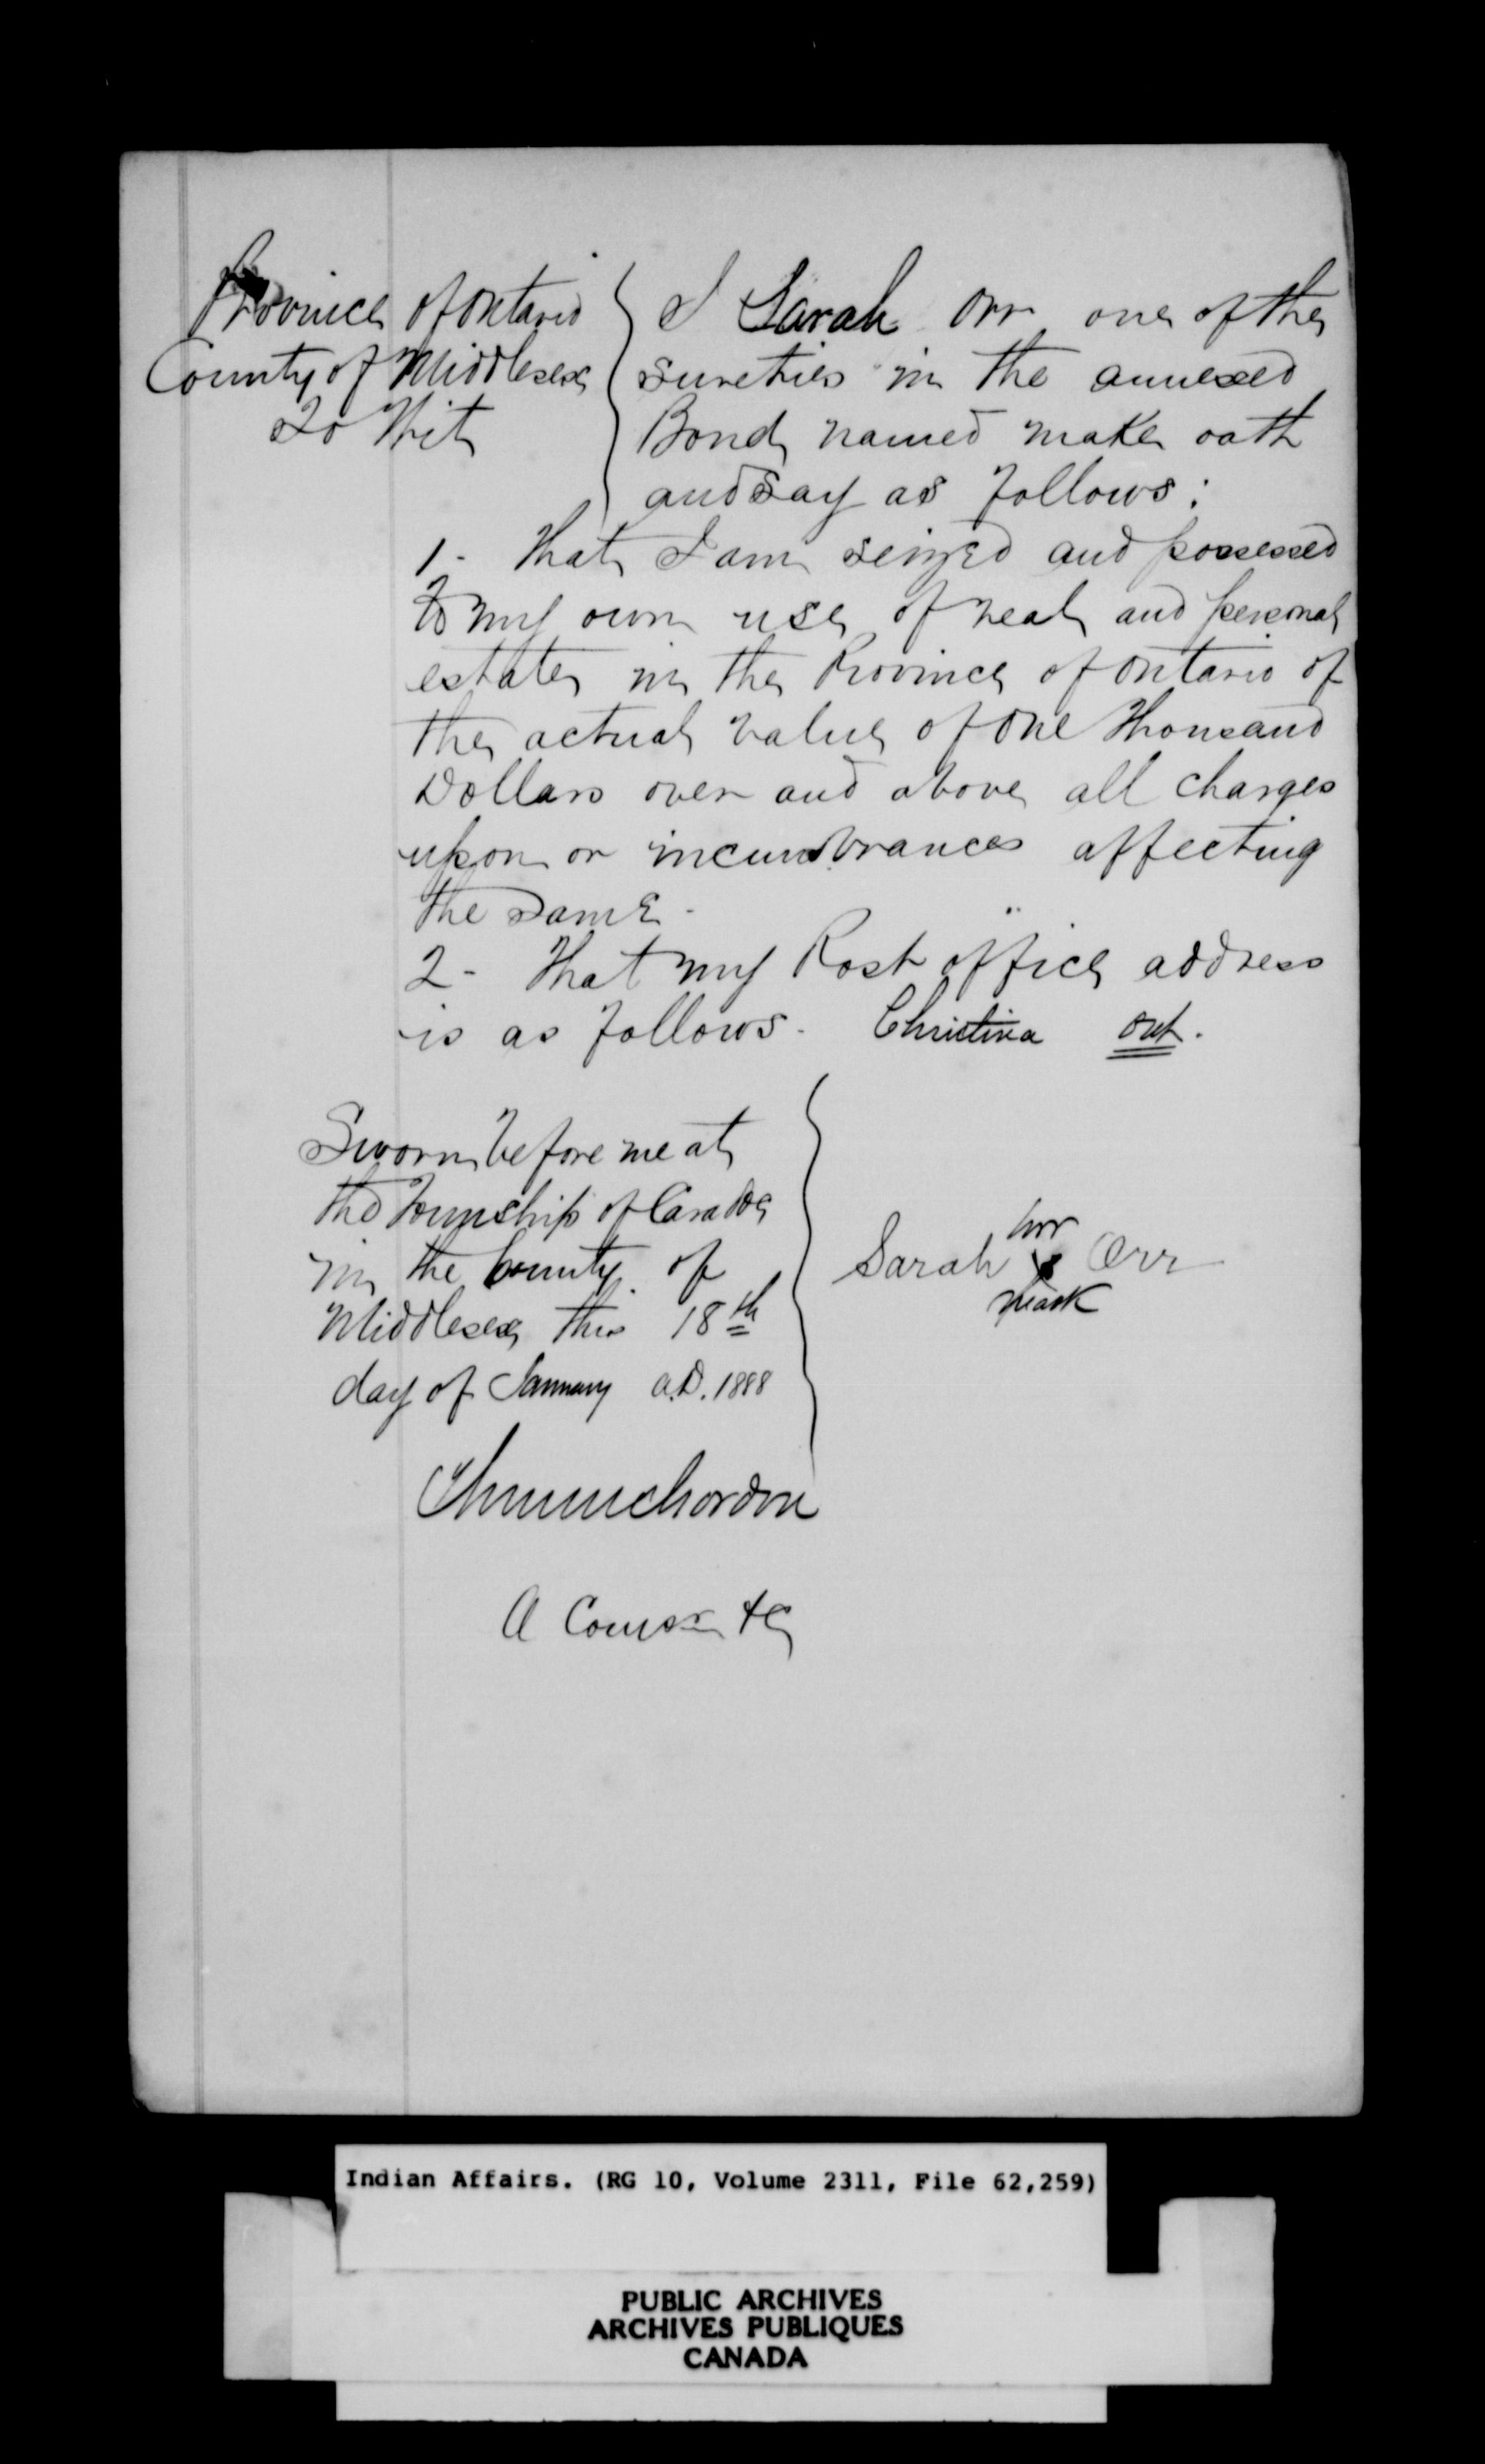 Province of Ontario
County of Middlesex
To Wit
I Sarah Orr one of the
sureties in the annexed
Bond named make oath
and say as follows:
1- That I am seized and possessed
to my own use of real and personal
estate in the Province of Ontario of
the actual value of One Thousand
Dollars over and above all charges
upon or incumbrances affecting
the same -
2- That my Post office address
is as follows - Christina Ont.
Sworn before me at
the Township of Caradoc
in the County of
Middlesex this 18th
day of January A.D. 1888
Sarah her x Orr
mark
A Comsr &c
Indian Affairs. (RG 10, Volume 2311, File 62,259)
PUBLIC ARCHIVES
ARCHIVES PUBLIQUES
CANADA